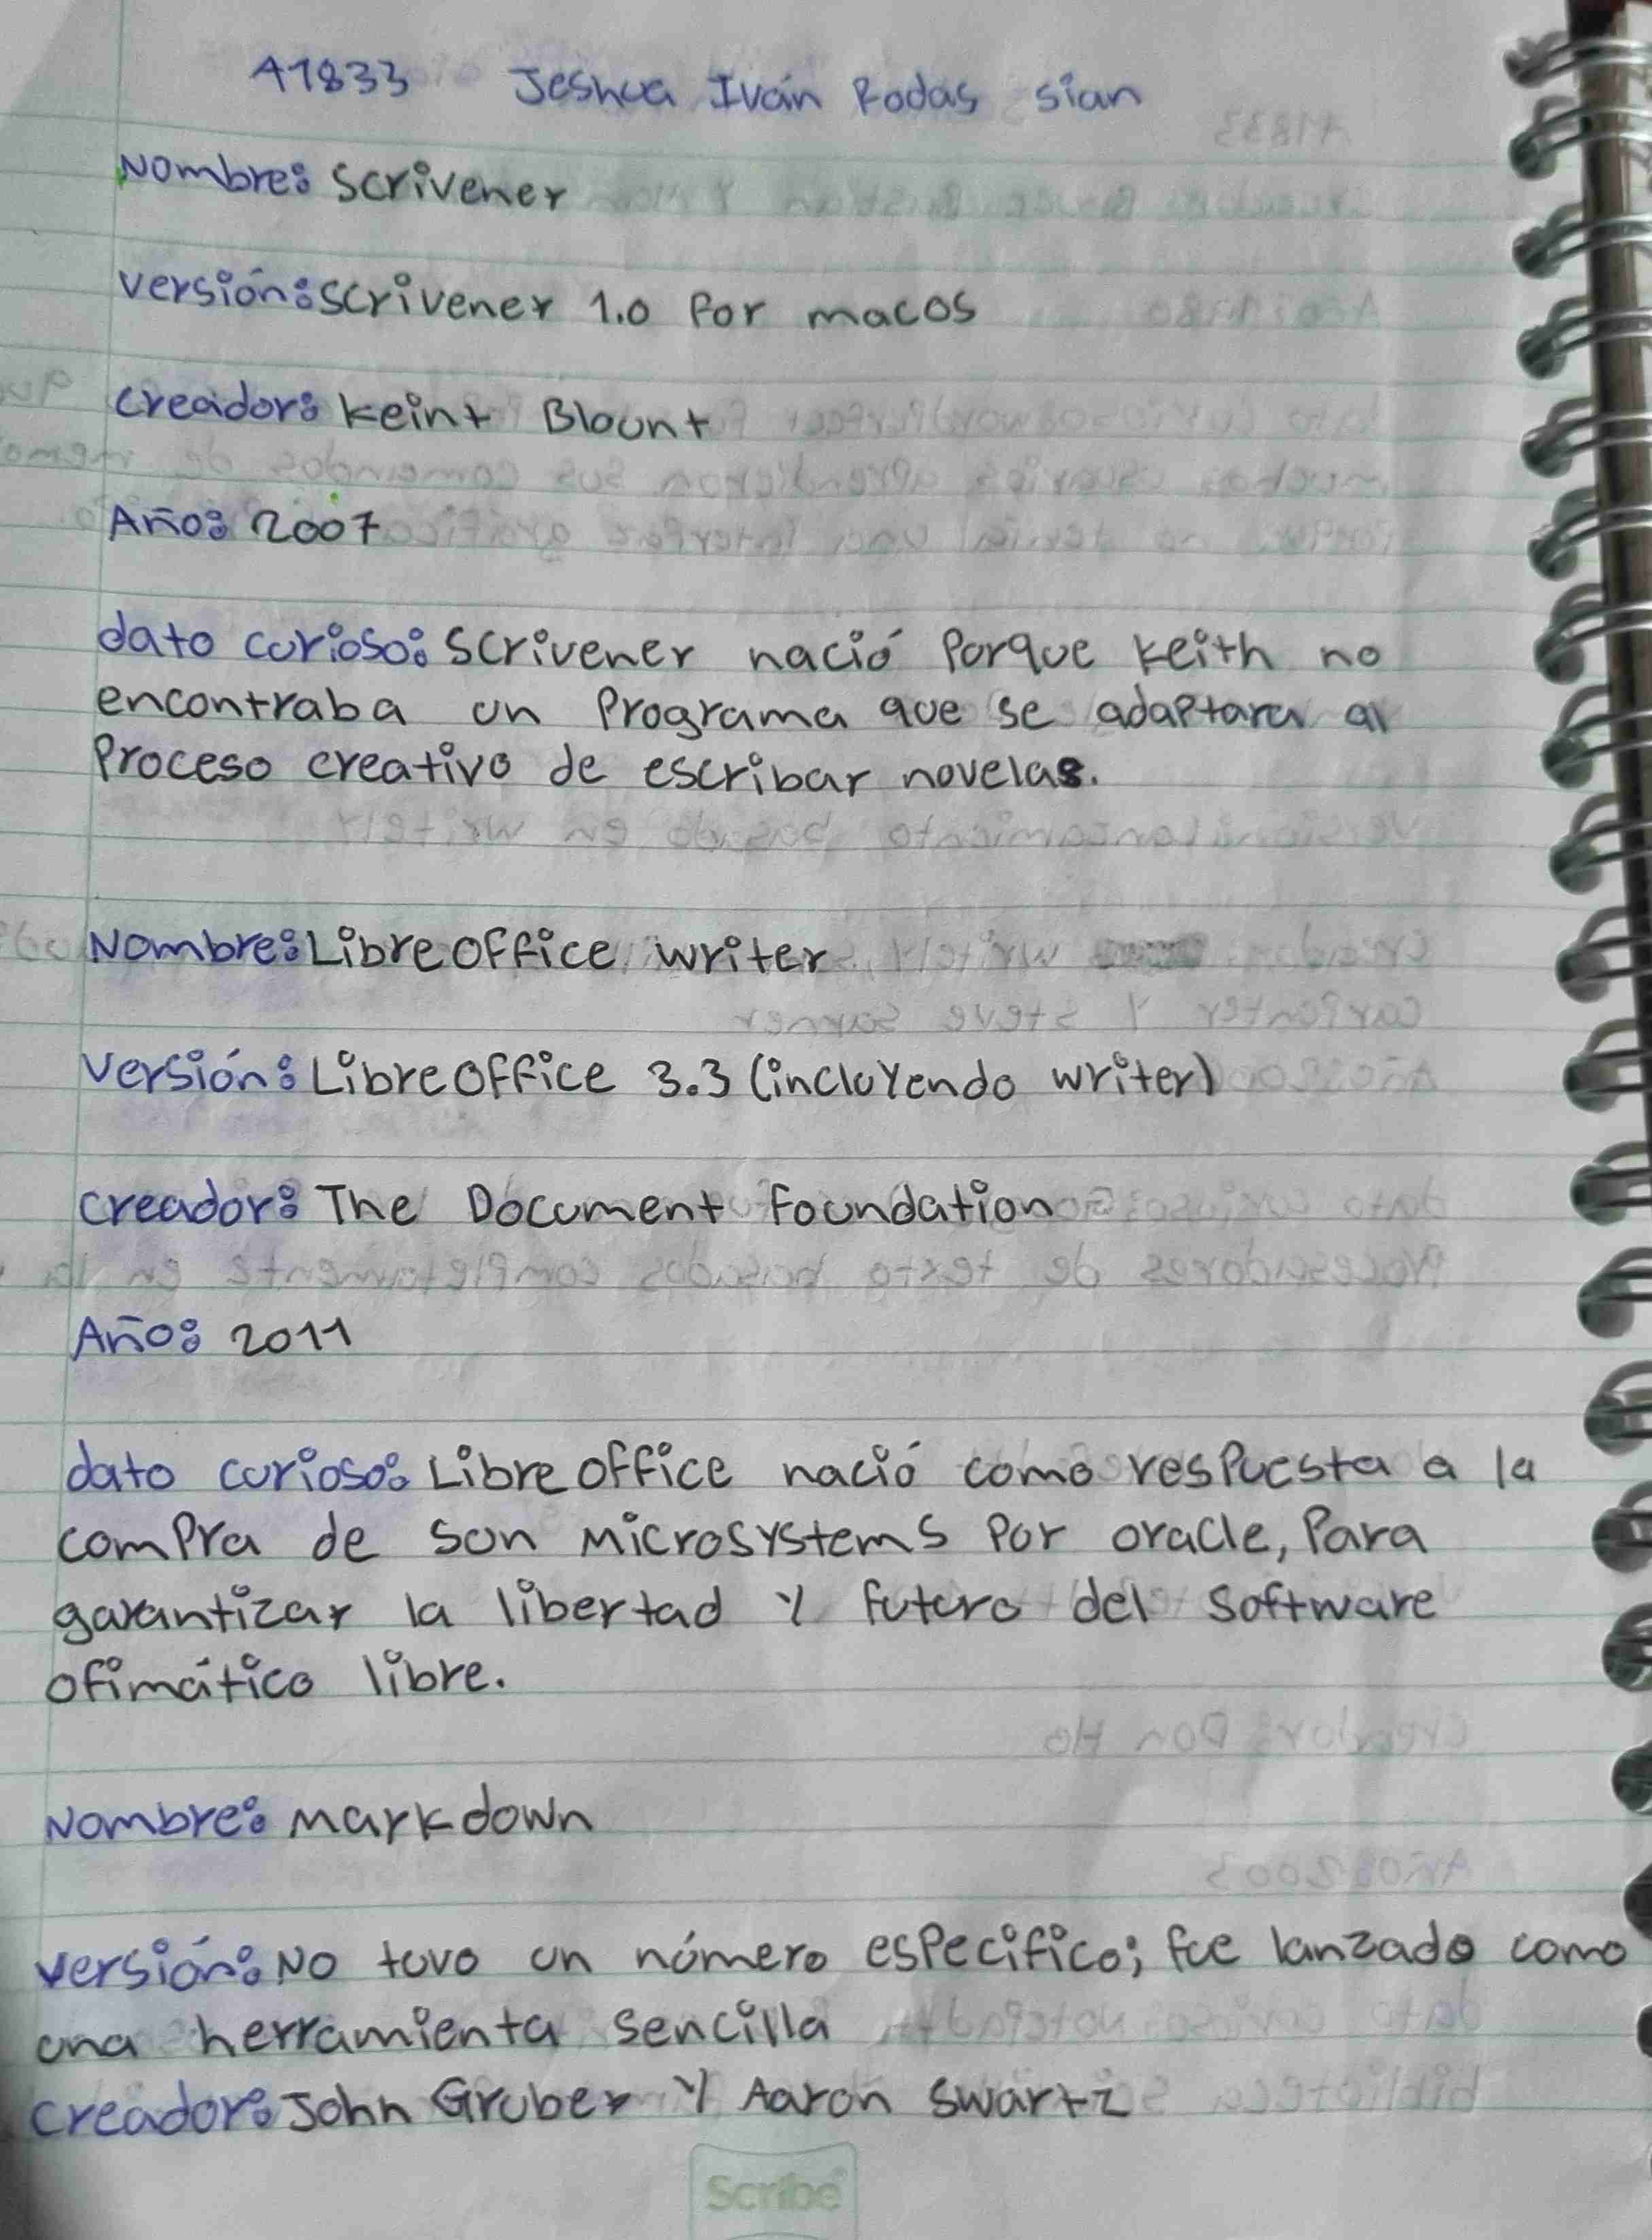 A1833 Jeshua Iván Rodas sian
Nombre: Scrivener
versión: Scrivener 1.0 for macos
creador: keint Blount
Año: 2007
dato curioso: Scrivener nació Porque keith no
encontraba un Programa que se adaptara al
Proceso creativo de escribar novelas.
Nombre: LibreOffice writer
versión: LibreOffice 3.3 (incluyendo writer)
creador: The Document Foundation
Año: 2011
dato curioso: Libre office nació como respuesta a la
compra de sun Microsystems Por oracle, Para
garantizar la libertad y futuro del software
ofimático libre.
Nombre: markdown
versión: No tuvo un número especifico; fue lanzado como
una herramienta sencilla
creador: John Gruber Y Aaron Swartz
Scribe